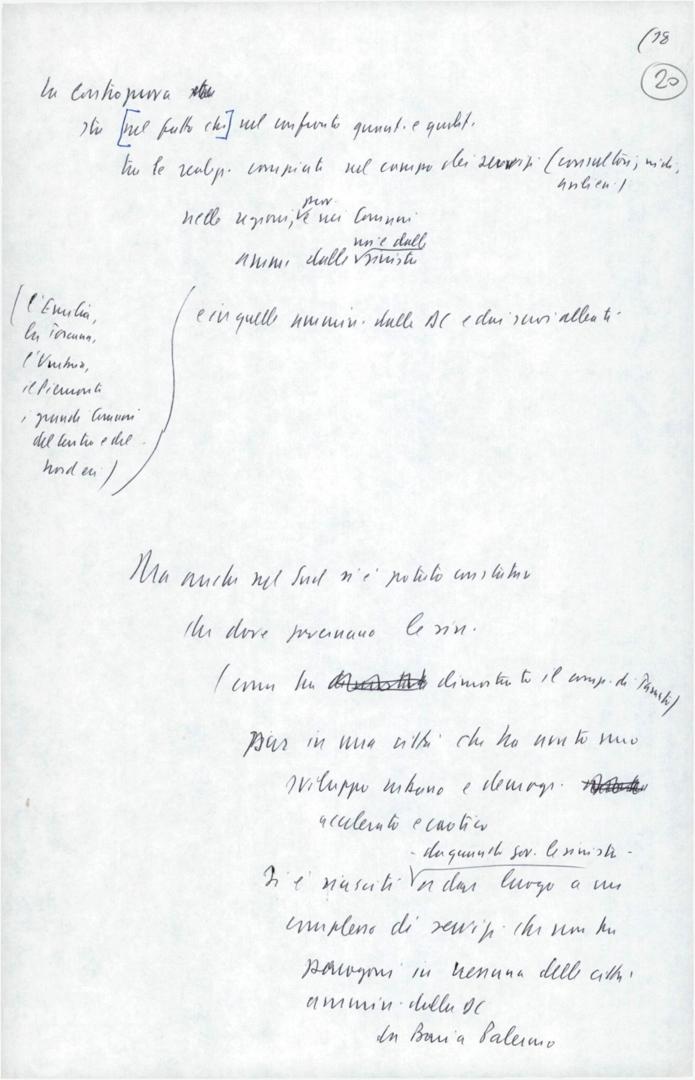 (18
20
La controprova
sta [nel fatto che] nel confronto quant. e qualit.
tra le realizz. compiute nel campo dei servizi (consultori, nidi,
asili ecc.)
nelle regioni, prov. e nei Comuni
ammi dalle sinistre
e in quelle ammin. dalla DC e dai suoi alleati.
(l'Emilia,
la Toscana,
l'Umbria,
il Piemonte
i grandi Comuni
del centro e del
Nord ecc.)
Ma anche nel Sud si è potuto constatare
che dove governano le sin.
(come ha dimostrato il comp. di Taranto)
Pur in una città che ha avuto uno
sviluppo urbano e demogr.
accelerato e caotico
- da quando gov. le sinistre -
Si è riusciti a dar luogo a un
complesso di servizi che non ha
paragoni in nessuna delle città
ammin. dalla DC
da Bari a Palermo